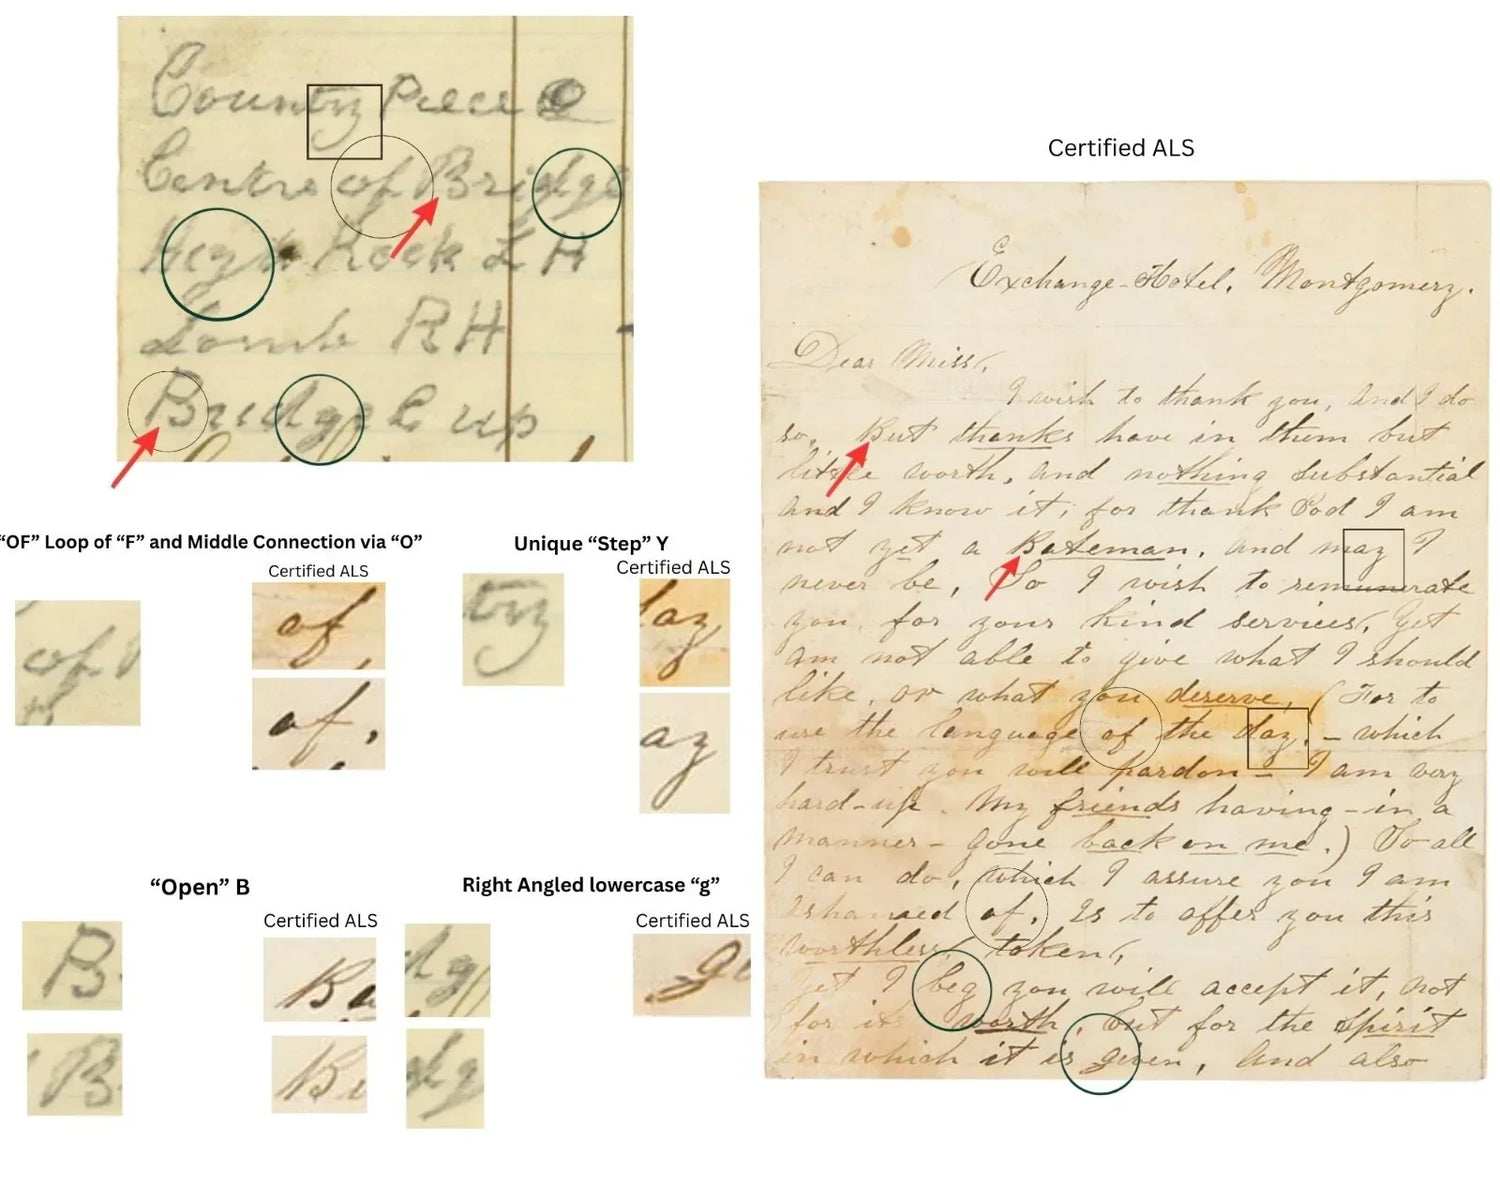 Country Piece C
Centre of Bridge
High Rock L H
Lomb R H
Bridge L up
Certified ALS
Exchange-Hotel, Montgomery.
Dear Miss,
I wish to thank you, and I do
so. But thanks have in them but
little worth, and nothing substantial
and I know it, for thank God I am
not yet a Bateman, and may I
never be, So I wish to remunerate
you, for your kind services, Yet
am not able to give what I should
like, or what you deserve, (For to
use the language of the day, - which
I trust you will pardon - I am very
hard-up. My friends having - in a
manner - gone back on me.) So all
I can do, which I assure you I am
ashamed of, Is to offer you this
worthless, token,
Yet I beg you will accept it, not
for its worth, but for the spirit
in which it is given, and also
"OF" Loop of "F" and Middle Connection via "O"
Certified ALS
of
of
of,
Unique "Step" Y
Certified ALS
try
day
ay
"Open" B
Certified ALS
B
B
B
B
Right Angled lowercase "g"
Certified ALS
dg
g